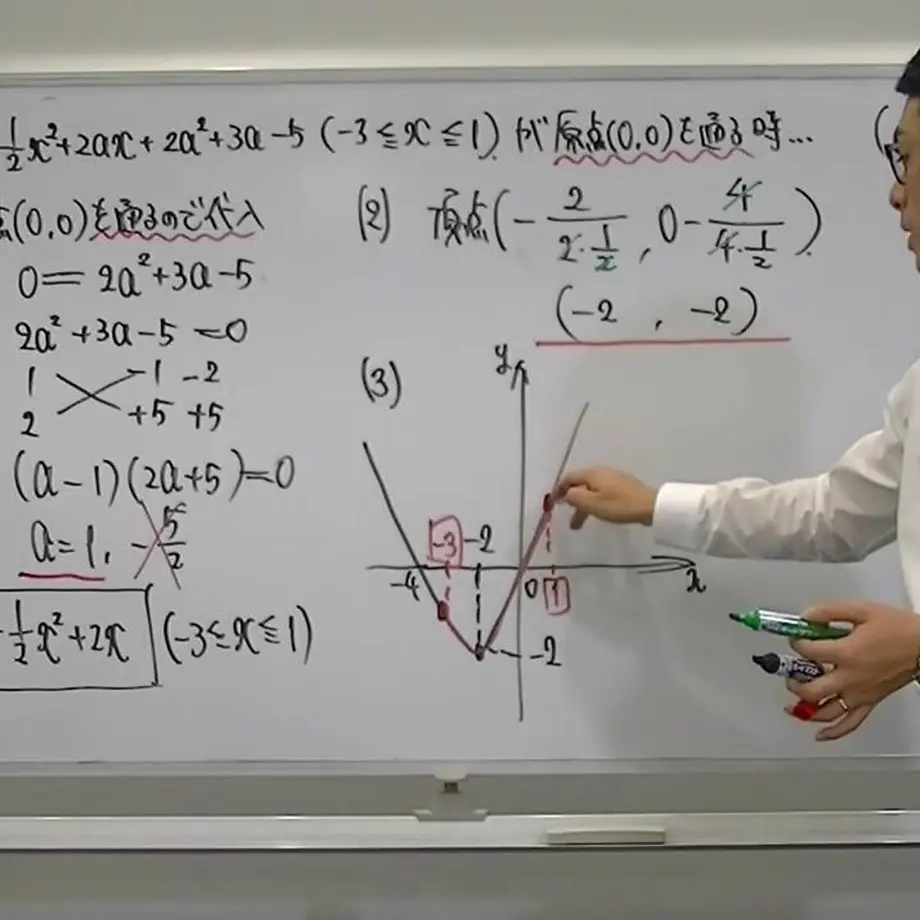 1/2x²+2ax+2a²+3a-5 (-3≦x≦1) が原点(0,0)を通る時… (
点(0,0)を通るので代入
0=2a²+3a-5
2a²+3a-5=0
1 -1 -2
2 +5 +5
(a-1)(2a+5)=0
a=1, -5/2
1/2x²+2x (-3≦x≦1)
(2) 頂点(-2/(2·1/2), 0-4/(4·1/2))
(-2, -2)
(3)
y
-3 -2
-4 0 1 x
-2